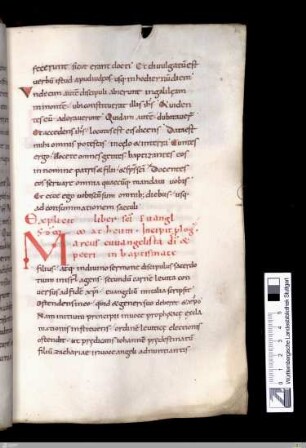 fecerunt sicut erant docti Et divulgatu est
verbu istud apud iudeos usq; in hodiernu diem
Undecim aute discipuli abierunt in galileam
in monte ubi constituerat illis ihs Et viden
tes eu adoraverunt Quidam aute dubitaver
Et accedens ihs locutus est eis dicens Data est
mihi omnis potestas in celo et in terra Euntes
ergo docete omnes gentes baptizantes eos
in nomine patris et filii et sps sci Docentes
eos servare omnia quaecuq; mandavi vobis
Et ecce ego vobiscu sum omnib; diebus usq;
ad consummationem saeculi
Explicit liber sci evangl
matheum Incipit plog
Marcus evangelista di
petri in baptismate
filius atq; in divino sermone discipulus sacerdotiu
in isrl agens secundu carne levita con
versus ad fide xpi evangeliu in italia scripsit
ostendens in eo quid et generi suo deberet et xpo
Nam initiu principii in voce propheticae excla
mationis instituens ordine leviticae electionis
ostendit ut praedicans iohanne praedestinatu
filiu zachariae in voce angeli adnuntiantis
Württembergische Landesbibliothek Stuttgart